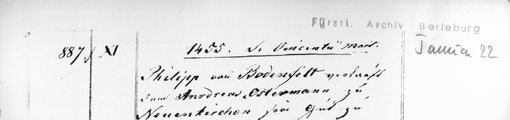 Fürstl. Archiv Berleburg
887 XI 1455. S. Vincentii mart. Januar 22
Philipp von Bodenfelt verkauft
dem Andreas Ostermann zu
Neuenkirchen sein Gut zu